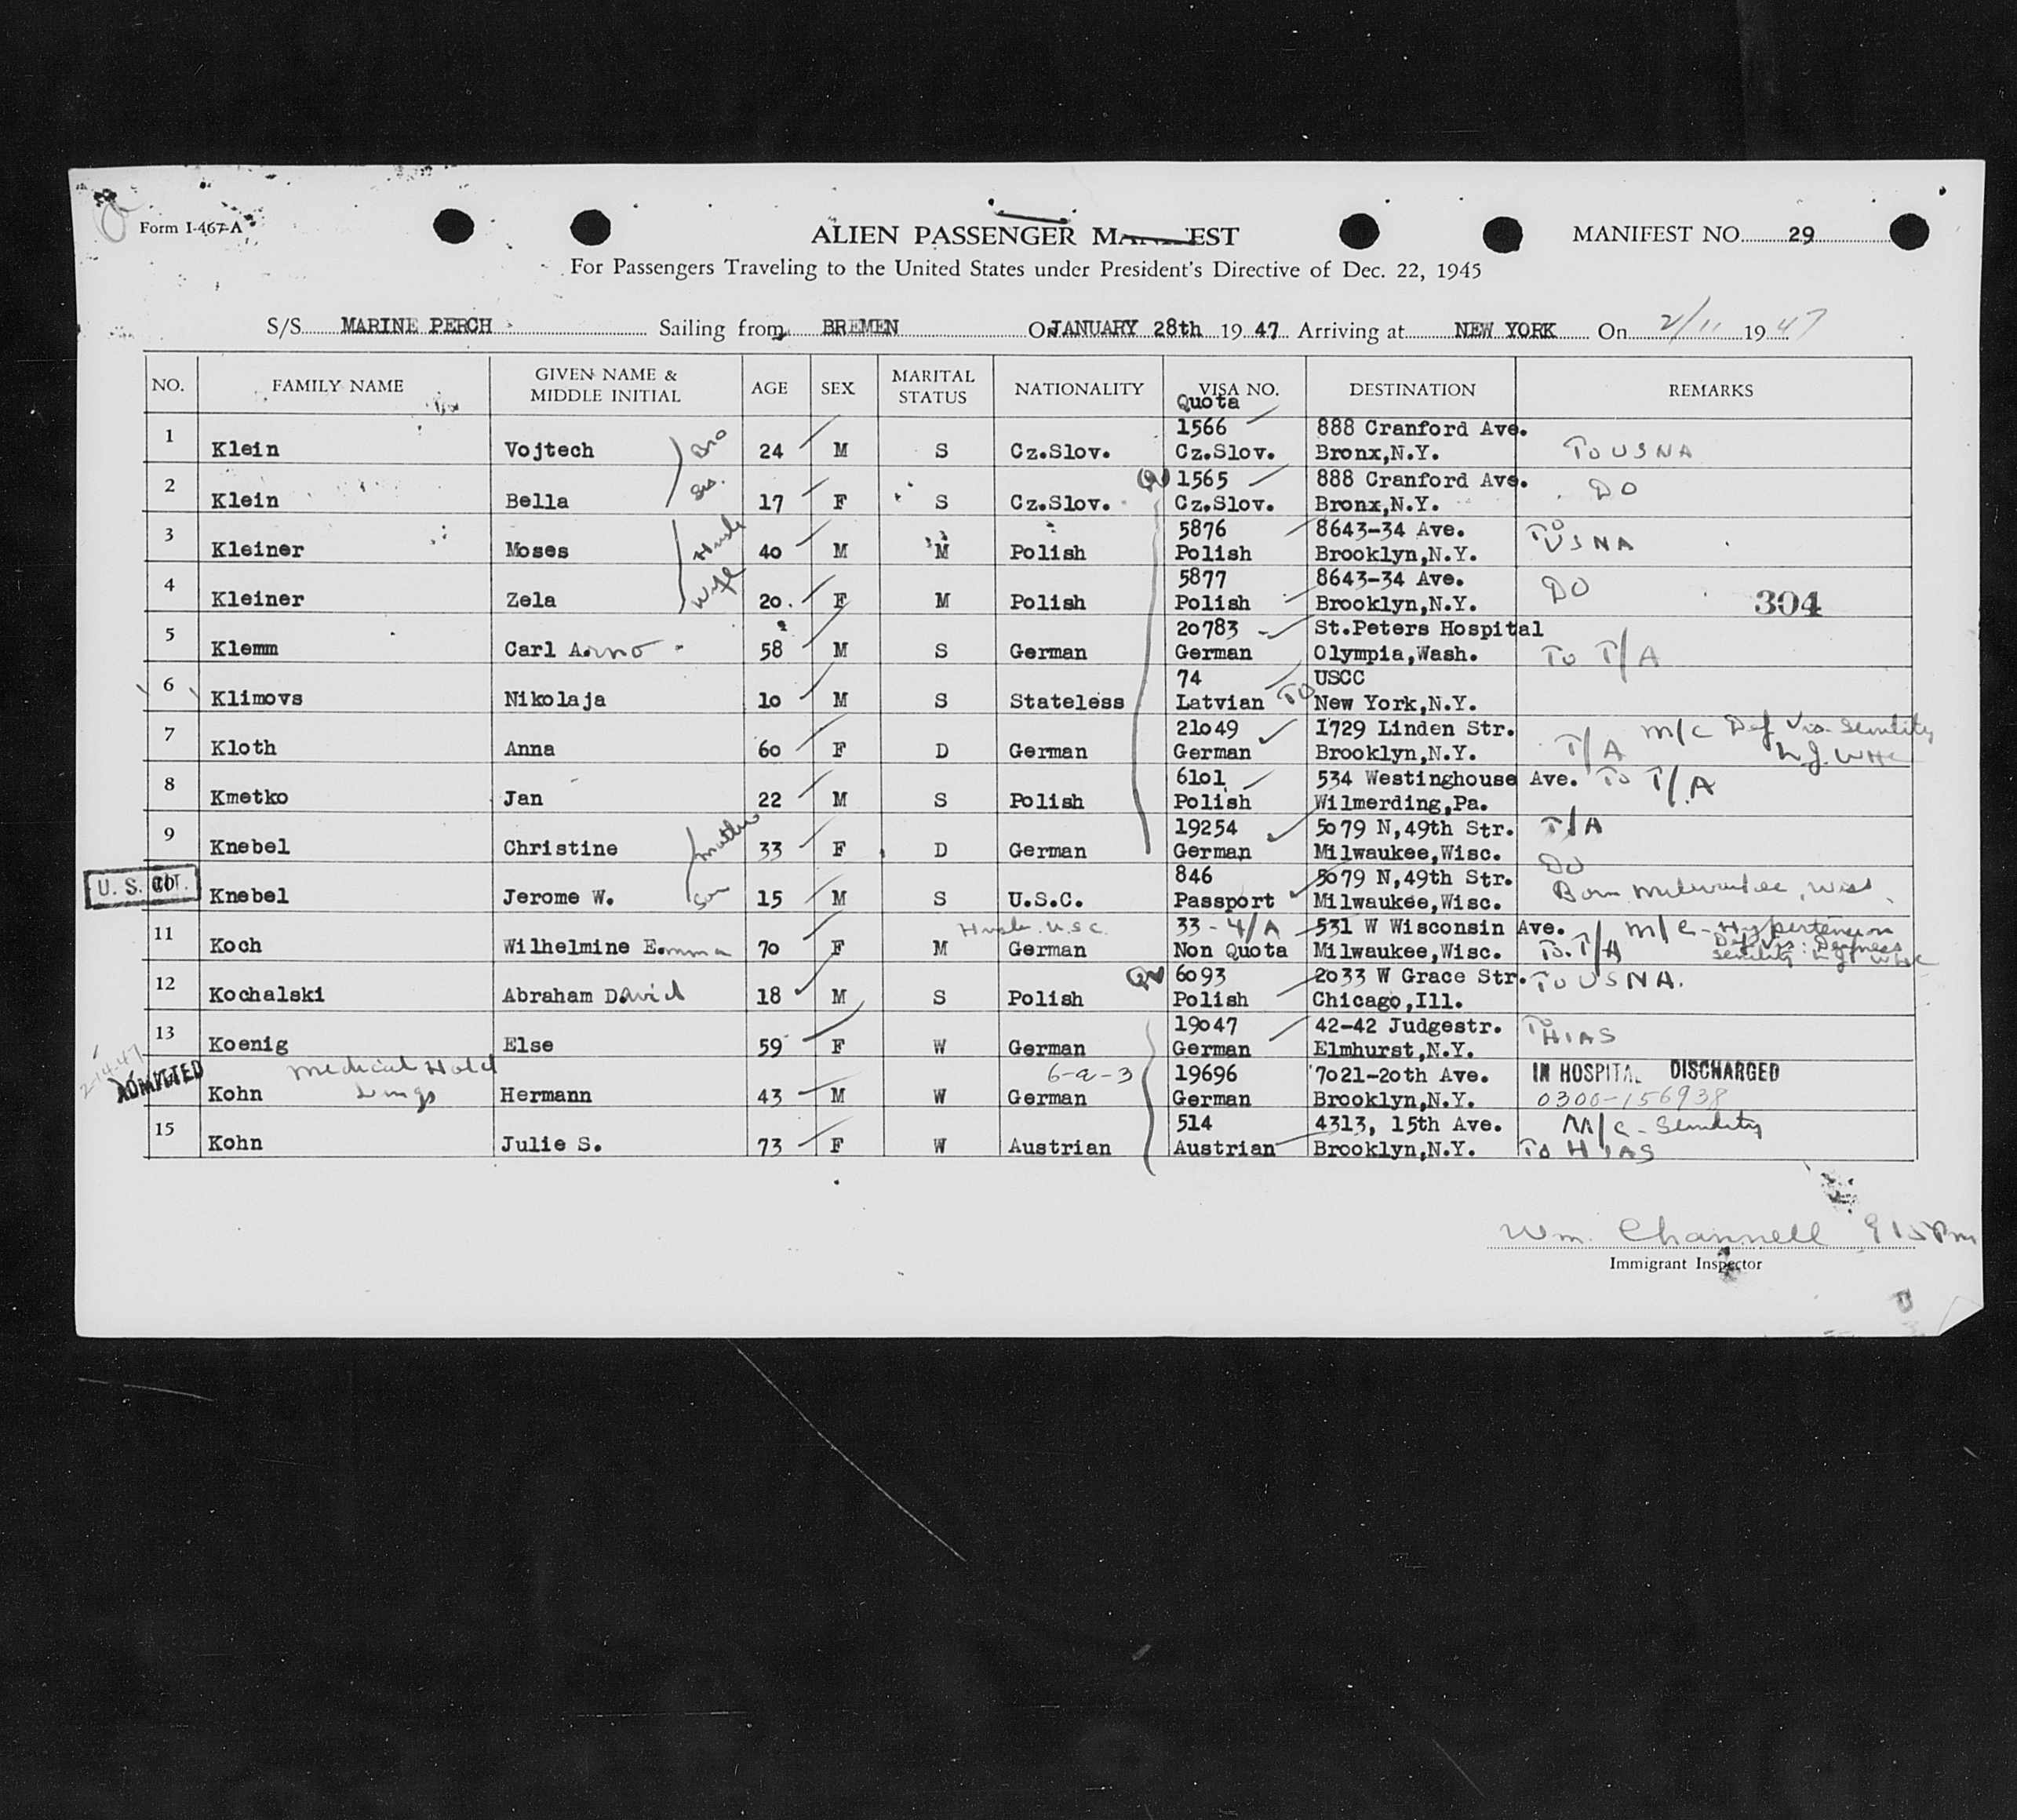 Form I-467-A
ALIEN PASSENGER MANIFEST
MANIFEST NO. 29
For Passengers Traveling to the United States under President's Directive of Dec. 22, 1945
S/S MARINE PERCH Sailing from BREMEN On JANUARY 28th 19 47 Arriving at NEW YORK On 2/11 19 47
NO. FAMILY NAME GIVEN NAME & MIDDLE INITIAL AGE SEX MARITAL STATUS NATIONALITY VISA NO. Quota DESTINATION REMARKS
1 Klein Vojtech Bro 24 M S Cz.Slov. 1566 Cz.Slov. 888 Cranford Ave. Bronx,N.Y. To USNA
2 Klein Bella Sis. 17 F S Cz.Slov. QV 1565 Cz.Slov. 888 Cranford Ave. Bronx,N.Y. DO
3 Kleiner Moses Husb 40 M M Polish 5876 Polish 8643-34 Ave. Brooklyn,N.Y. To USNA
4 Kleiner Zela Wife 20. F M Polish 5877 Polish 8643-34 Ave. Brooklyn,N.Y. DO 304
5 Klemm Carl A.rno 58 M S German 20783 German St.Peters Hospital Olympia,Wash. To T/A
6 Klimovs Nikolaja 10 M S Stateless 74 Latvian TO USCC New York,N.Y.
7 Kloth Anna 60 F D German 21049 German 1729 Linden Str. Brooklyn,N.Y. T/A M/C Def Vis. Senility
8 Kmetko Jan 22 M S Polish 6101 Polish 534 Westinghouse Ave. Wilmerding,Pa. To T/A
9 Knebel Christine Mother 33 F D German 19254 German 5079 N,49th Str. Milwaukee,Wisc. T/A
U. S. CIT. 10 Knebel Jerome W. Son 15 M S U.S.C. 846 Passport 5079 N,49th Str. Milwaukee,Wisc. DO Born Milwaukee, Wisc.
11 Koch Wilhelmine E.mma 70 F M Husb. U.S.C. German 33 - 4/A Non Quota 531 W Wisconsin Ave. Milwaukee,Wisc. To. T/A M/C - Hypertension Def Vis: Deafness Senility
12 Kochalski Abraham David 18 M S Polish QV 6093 Polish 2033 W Grace Str. Chicago,Ill. To USNA.
13 Koenig Else 59 F W German 19047 German 42-42 Judgestr. Elmhurst,N.Y. To HIAS
2-14-47 ADMITTED Kohn Medical Hold Lungs Hermann 43 M W 6-a-3 German 19696 German 7021-20th Ave. Brooklyn,N.Y. IN HOSPITAL DISCHARGED 0300-156938
15 Kohn Julie S. 73 F W Austrian 514 Austrian 4313, 15th Ave. Brooklyn,N.Y. M/C - Senility To HIAS
Wm. Channell 915 Pm
Immigrant Inspector